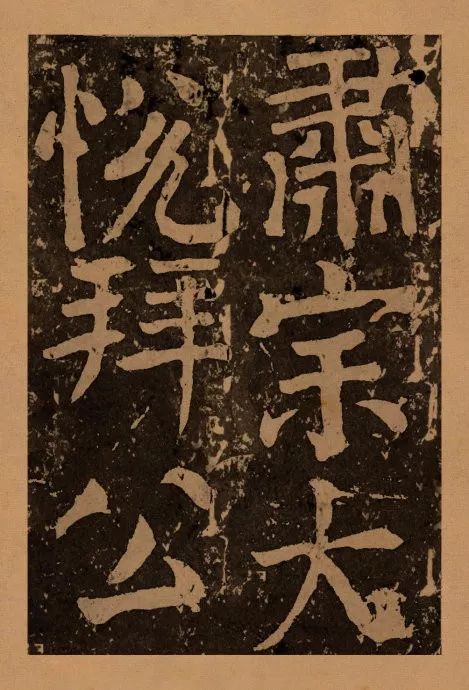 肅宗大
悅拜公